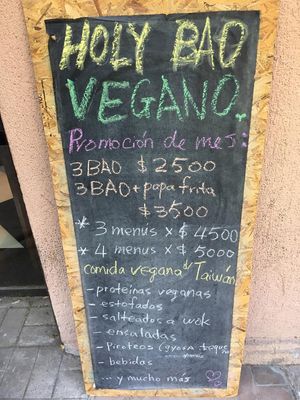 HOLY BAO
VEGANO.
Promoción de mes:
3 BAO $2500
3 BAO + papa frita
$3500
* 3 menus x $4500
* 4 menus x $5000
comida vegana d/ Taiwán
- proteinas veganas
- estofados
- salteados a wok
- ensaladas
- Piroteos (gyoza
- bebidas
... y mucho más